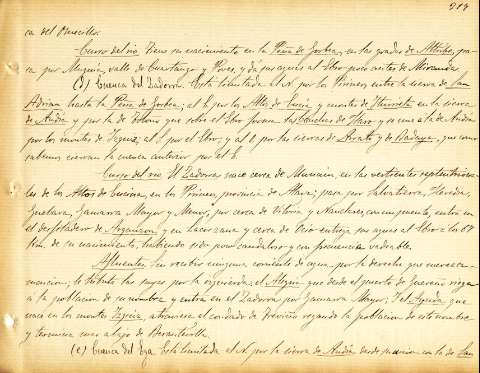 217
ca del Omecillo.
Curso del río. Tiene su nacimiento en la Peña de Gorbea, en las gradas de Altube, pa-
sa por Murguía, valle de Cuartango y Pobes, y dá sus aguas al Ebro poco antes de Miranda
(d) Cuenca del Zadorra. Está limitada al N. por los Pirineos entre la sierra de San
Adrian hasta la Peña de Gorbea; al E. por los Altos de y montes de Iturrieta en la sierra
de Andía y por la de Toloño que sobre el Ebro forma las Conchas de Haro, y se une a la de Andía
por los montes de Izquiz, al S. por el Ebro; y al O. por las sierras de Arrato y de Badaya, que como
sabemos cierran la cuenca anterior por el E.
Curso del río. El Zadorra nace cerca de Munain, en las vertientes septentriona-
les de los Altos de en los Pirineos, provincia de Alava; pasa por Salvatierra, Heredia,
Guevara, Gamarra Mayor y Menor, por cerca de Vitoria y Nanclares, con su puente, entra en
el desfiladero de Arganzon, y en Lacorzana y cerca de Ircio entrega sus aguas al Ebro a los 67
Km. de su nacimiento, habiendo sido poco caudaloso y con frecuencia vadeable.
Afluentes. Sin recibir ninguna corriente de agua por la derecha que merezca
mencion, le tributa las suyas por la izquierda, el Alegria que desde el puerto de Guereñu riega
a la poblacion de su nombre y entra en el Zadorra por Gamarra Mayor; y el Ayuda que
nace en los montes Izquiz, atraviesa el condado de Treviño regando la poblacion de este nombre
y termina mas abajo de Berantevilla.
(e) Cuenca del Ega. Está limitada al N. por la sierra de Andía desde su union con la de San